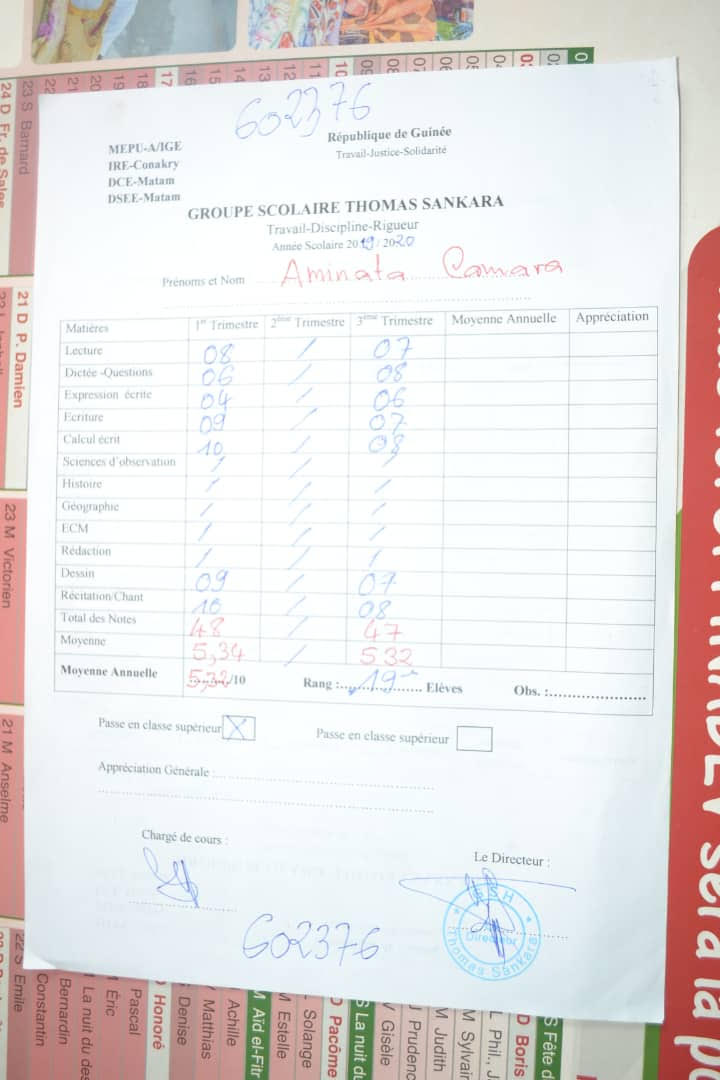 602376
MEPU-A/IGE
IRE-Conakry
DCE-Matam
DSEE-Matam
République de Guinée
Travail-Justice-Solidarité
GROUPE SCOLAIRE THOMAS SANKARA
Travail-Discipline-Rigueur
Année Scolaire 2019/2020
Prénoms et Nom Aminata Camara
Matières 1er Trimestre 2ème Trimestre 3ème Trimestre Moyenne Annuelle Appréciation
Lecture 08 / 07
Dictée -Questions 06 / 08
Expression écrite 04 / 06
Ecriture 09 / 07
Calcul écrit 10 / 08
Sciences d'observation / / /
Histoire / / /
Géographie / / /
ECM / / /
Rédaction / / /
Dessin 09 / 07
Récitation/Chant 10 / 08
Total des Notes 48 / 47
Moyenne 5,34 / 532
Moyenne Annuelle /10 Rang :..... 19 ..... Elèves Obs. :.....................
Passe en classe supérieur X
Passe en classe supérieur
Appréciation Générale :
Chargé de cours :
Le Directeur :
Directeur
Thomas Sankara
602376
24 D Fr. de Sales
23 S Barnard
21 D P. Damien
23 M Victorien
21 M Anselme
22 S Emile
Constantin
Bernardin
La nuit du des
Éric
Pascal
Honoré
Denise
Matthias
Achille
M Aïd el-Fitr
M Estelle
Solange
D Pacôme
S La nuit du
V Gisèle
J Prudenc
M Judith
M Sylvain
L Phil., J
D Boris
S Fête d
sera la p